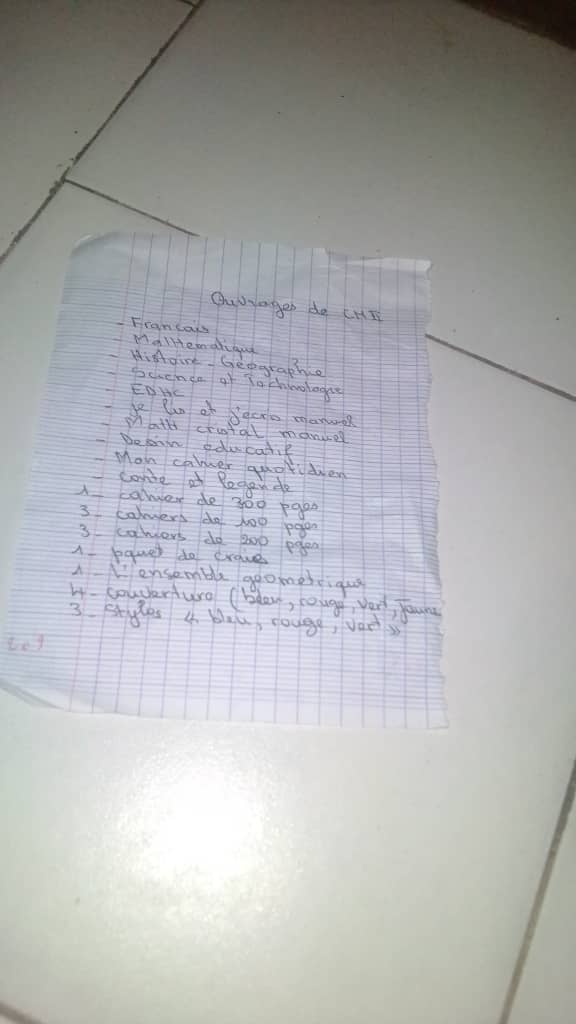 Ouvrages de CM II
- Francais
- Mathematique
- Histoire - Géographie
- Science et Technologie
- EDHC
- Je lis et j'ecris manuel
- Math cristal manuel
- Dessin educatif
- Mon cahier quotidien
- conte et legende
1 - cahier de 300 pges
3 - cahiers de 100 pges
3 - cahiers de 200 pges
1 - pquet de craies
1 - L'ensemble géometrique
4 - couverture (bleu, rouge, vert, jaune
3 - styles « bleu, rouge, vert »